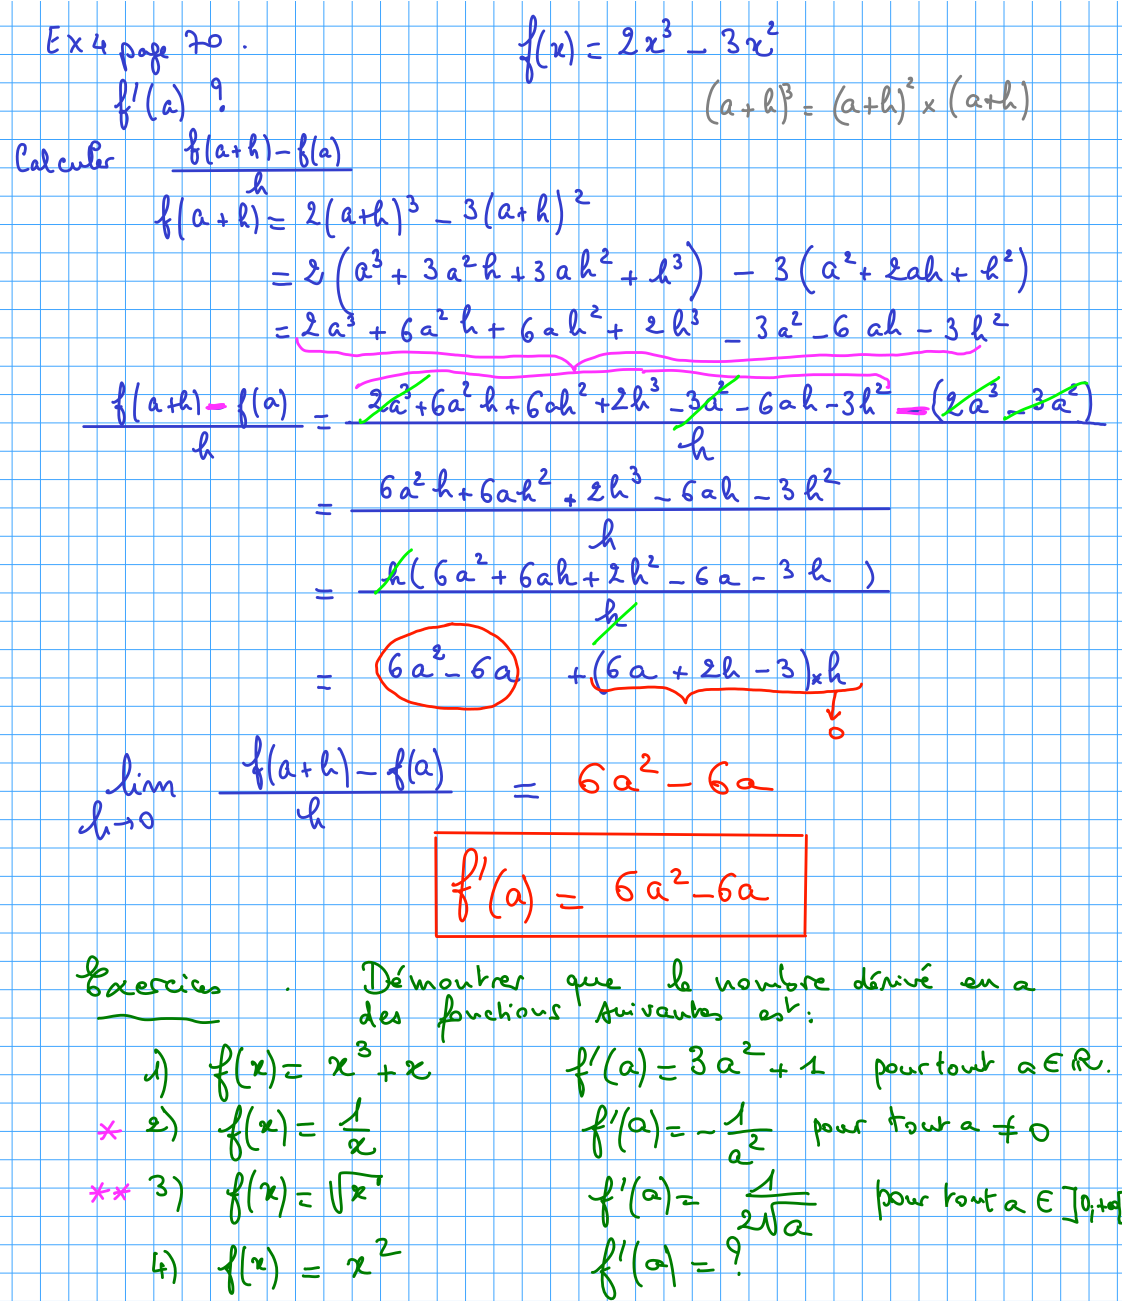 Ex 4 page 70.
f(x) = 2x³ - 3x²
f'(a) ?
(a+h)³ = (a+h)² × (a+h)
Calculer (f(a+h) - f(a))/h
f(a+h) = 2(a+h)³ - 3(a+h)²
= 2(a³ + 3a²h + 3ah² + h³) - 3(a² + 2ah + h²)
= 2a³ + 6a²h + 6ah² + 2h³ - 3a² - 6ah - 3h²
(f(a+h) - f(a))/h = (2a³ + 6a²h + 6ah² + 2h³ - 3a² - 6ah - 3h² - (2a³ - 3a²))/h
= (6a²h + 6ah² + 2h³ - 6ah - 3h²)/h
= h(6a² + 6ah + 2h² - 6a - 3h)/h
= 6a² - 6a + (6a + 2h - 3)×h
0
lim h→0 (f(a+h) - f(a))/h = 6a² - 6a
f'(a) = 6a² - 6a
Exercices . Démontrer que le nombre dérivé en a
des fonctions suivantes est :
1) f(x) = x³ + x f'(a) = 3a² + 1 pour tout a ∈ ℝ.
* 2) f(x) = 1/x f'(a) = - 1/a² pour tout a ≠ 0
** 3) f(x) = √x f'(a) = 1/(2√a) pour tout a ∈ ]0;+∞[
4) f(x) = x² f'(a) = ?